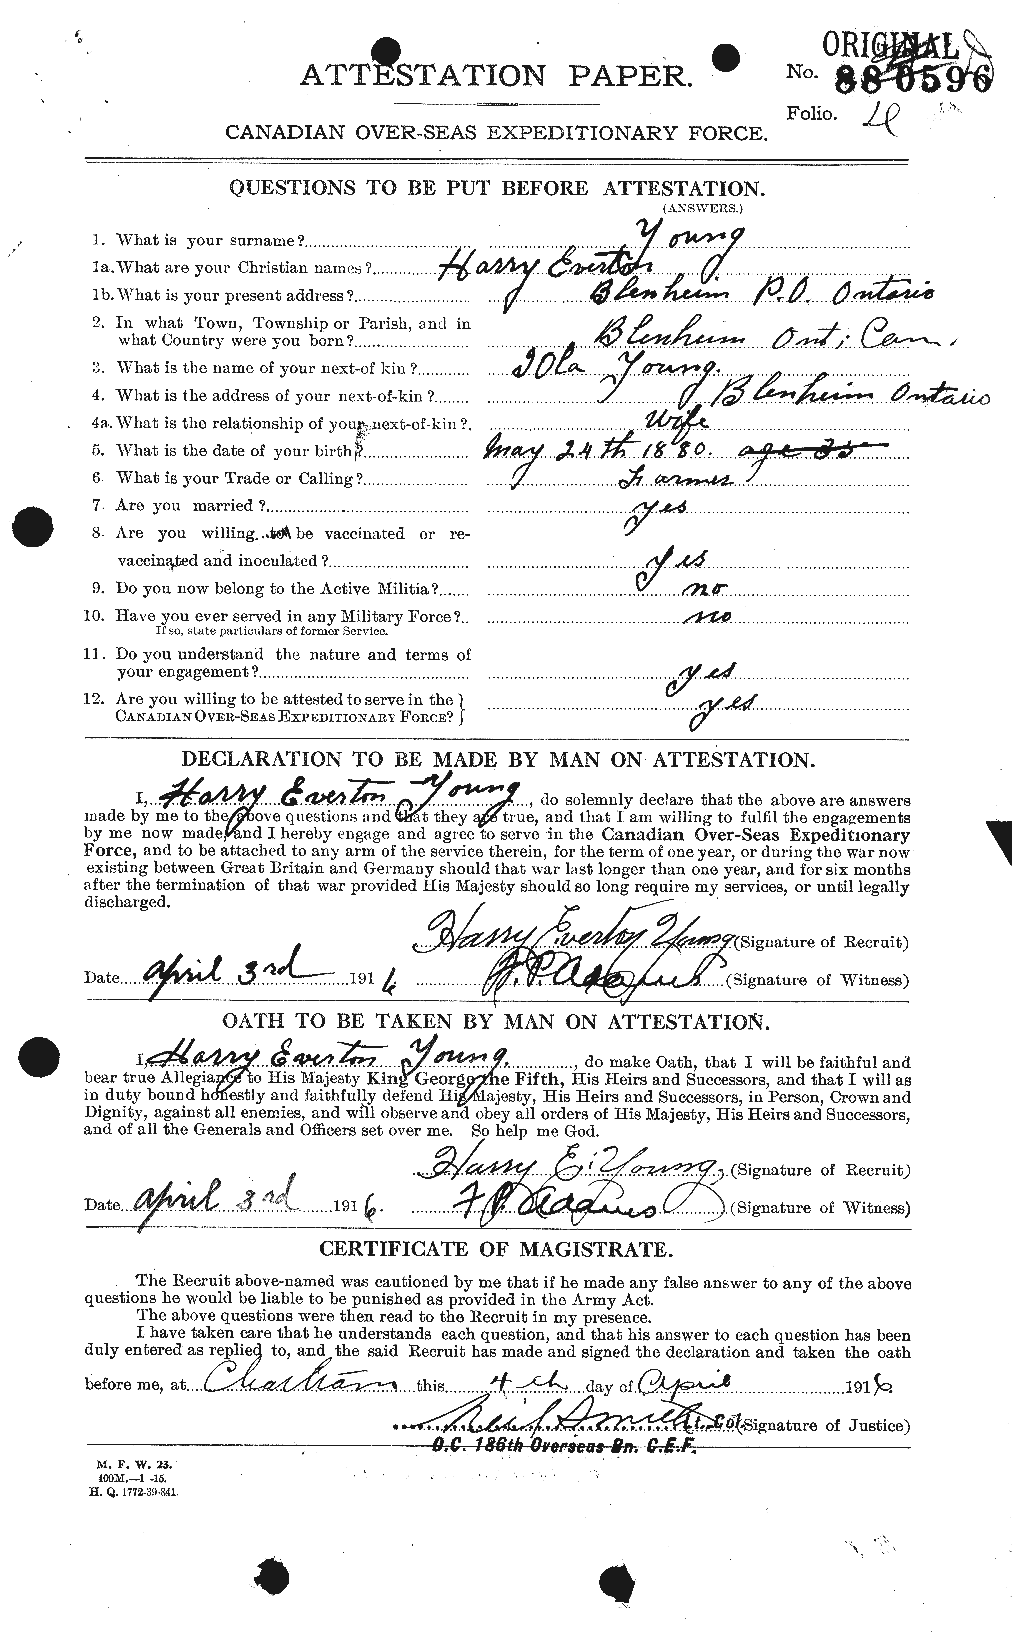 ORIGINAL
ATTESTATION PAPER.
No. 880596
Folio.
CANADIAN OVER-SEAS EXPEDITIONARY FORCE.
QUESTIONS TO BE PUT BEFORE ATTESTATION.
(ANSWERS.)
1. What is your surname? Young
1a. What are your Christian names? Harry Everton
1b. What is your present address? Blenheim P.O. Ontario
2. In what Town, Township or Parish, and in
what Country were you born? Blenheim Ont; Can.
3. What is the name of your next-of kin? IOla Young.
4. What is the address of your next-of-kin? Blenheim Ontario
4a. What is the relationship of your next-of-kin? Wife
5. What is the date of your birth? May 24th 1880. age 35
6. What is your Trade or Calling? Farmer
7. Are you married? yes
8. Are you willing to be vaccinated or re-
vaccinated and inoculated? Yes
9. Do you now belong to the Active Militia? no
10. Have you ever served in any Military Force? no
If so, state particulars of former Service.
11. Do you understand the nature and terms of
your engagement? yes
12. Are you willing to be attested to serve in the
CANADIAN OVER-SEAS EXPEDITIONARY FORCE? yes
DECLARATION TO BE MADE BY MAN ON ATTESTATION.
I, Harry Everton Young, do solemnly declare that the above are answers
made by me to the above questions and that they are true, and that I am willing to fulfil the engagements
by me now made, and I hereby engage and agree to serve in the Canadian Over-Seas Expeditionary
Force, and to be attached to any arm of the service therein, for the term of one year, or during the war now
existing between Great Britain and Germany should that war last longer than one year, and for six months
after the termination of that war provided His Majesty should so long require my services, or until legally
discharged.
Harry Everton Young (Signature of Recruit)
Date April 3rd 1916 (Signature of Witness)
OATH TO BE TAKEN BY MAN ON ATTESTATION.
I, Harry Everton Young, do make Oath, that I will be faithful and
bear true Allegiance to His Majesty King George the Fifth, His Heirs and Successors, and that I will as
in duty bound honestly and faithfully defend His Majesty, His Heirs and Successors, in Person, Crown and
Dignity, against all enemies, and will observe and obey all orders of His Majesty, His Heirs and Successors,
and of all the Generals and Officers set over me. So help me God.
Harry E. Young (Signature of Recruit)
Date April 3rd 1916. (Signature of Witness)
CERTIFICATE OF MAGISTRATE.
The Recruit above-named was cautioned by me that if he made any false answer to any of the above
questions he would be liable to be punished as provided in the Army Act.
The above questions were then read to the Recruit in my presence.
I have taken care that he understands each question, and that his answer to each question has been
duly entered as replied to, and the said Recruit has made and signed the declaration and taken the oath
before me, at Chatham this 4th day of April 1916
Neil Smith Lt. Col. (Signature of Justice)
O.C. 186th Overseas Bn. C.E.F.
M. F. W. 23.
400M.—1 -15.
H. Q. 1772-39-841.